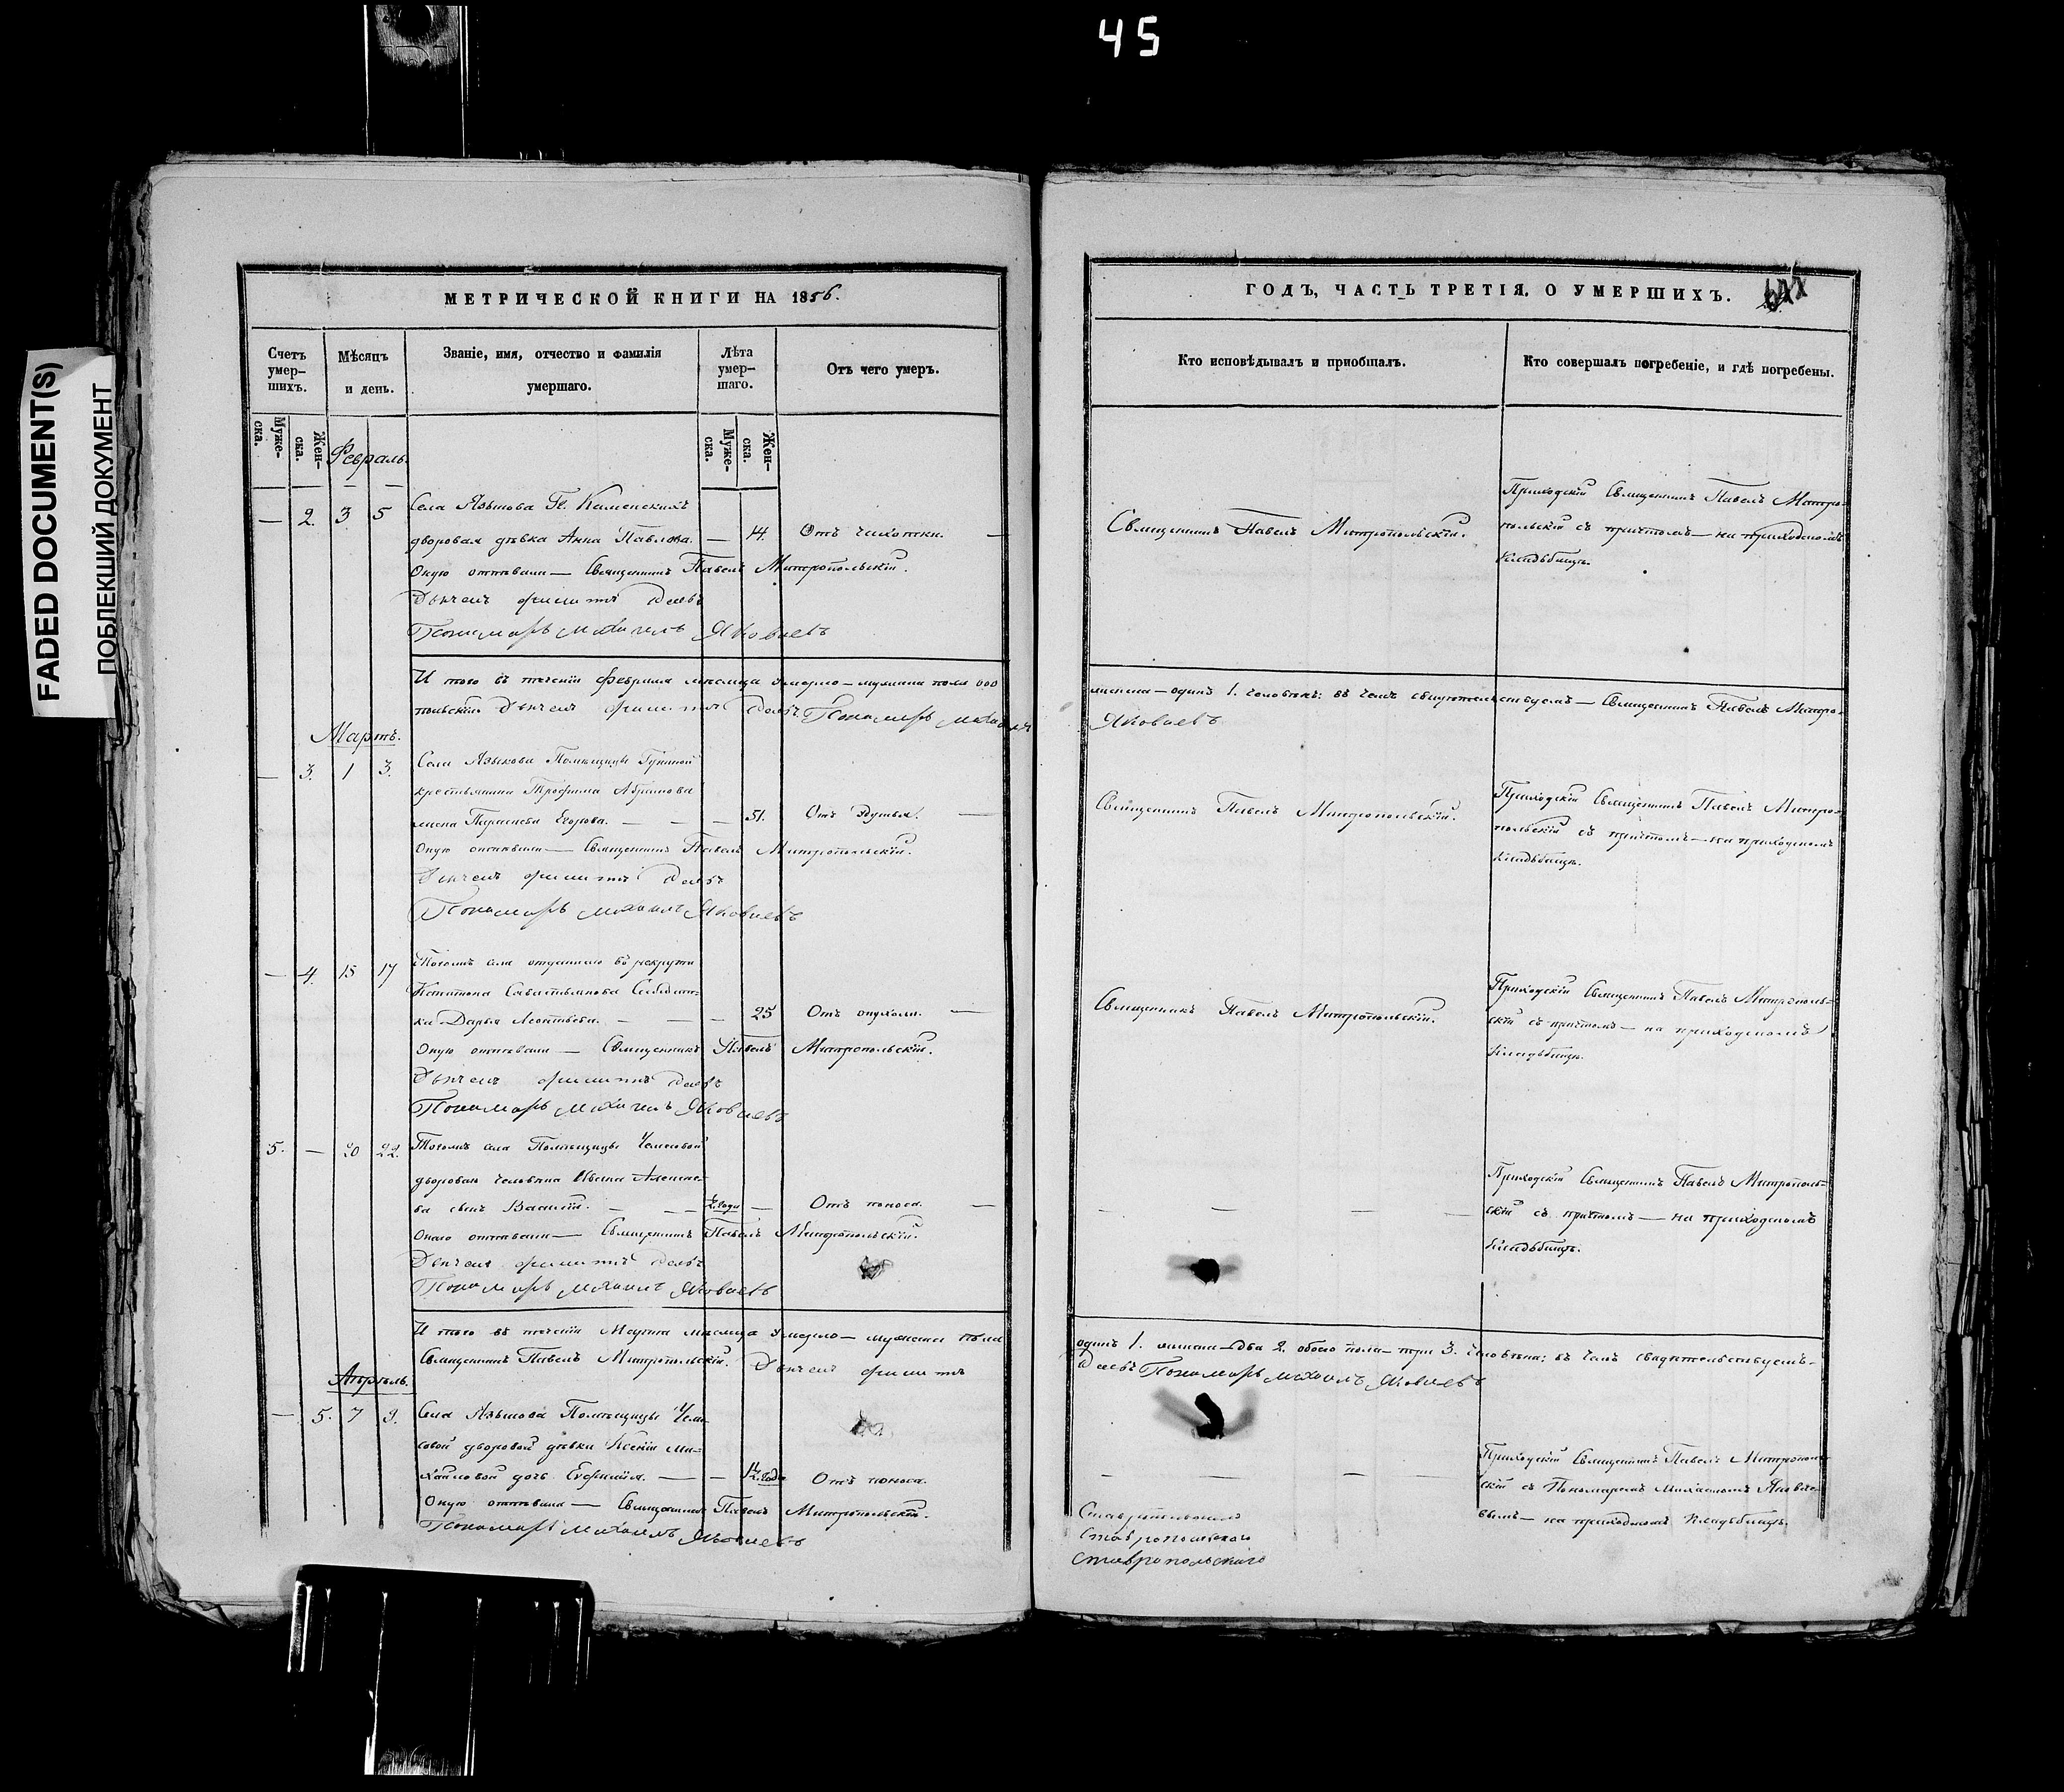 45
FADED DOCUMENT(S)
ПОБЛЕКШИЙ ДОКУМЕНТ
МЕТРИЧЕСКОЙ КНИГИ НА 1856.
Счетъ умер-шихъ.
Мѣсяцъ и день.
Званіе, имя, отчество и фамилія умершаго.
Лѣта умер-шаго.
Отъ чего умеръ.
Муже-ска.
Жен-ска.
Муже-ска.
Жен-ска.
Февраль.
— 2. 3. 5
Села Языкова Гг. Каменскихъ
дворовая дѣвка Анна Павлова. — 14. Отъ чахотки. —
Оную отпѣвали — Священникъ Павелъ Митропольскій.
Дьячекъ
Пономарь Михаилъ Яковлевъ
И того въ теченіи Февраля мѣсяца умерло — мужеска пола 000
польскій Дьячекъ Пономарь Михаилъ
Мартъ.
— 3. 1 3.
Села Языкова Помѣщицы
крестьянина Трофима Абрамова
жена Егорова. — — — 51. Отъ удушья. —
Оную отпѣвали — Священникъ Павелъ Митропольскій.
Дьячекъ
Пономарь Михаилъ Яковлевъ
— 4. 15 17
Тогожъ села отданнаго въ рекруты
Капитона Савастьянова Солдат-
ка Дарья Леонтьева. — — — 25 Отъ опухоли. —
Оную отпѣвали — Священникъ Павелъ Митропольскій.
Дьячекъ
Пономарь Михаилъ Яковлевъ
5. — 20 22.
Тогожъ села Помѣщицы
дворован человѣка Ивана Алексѣе-
ва сынъ Василій. — — — ½ года — Отъ поноса. —
Онаго отпѣвали — Священникъ Павелъ Митропольскій.
Дьячекъ
Пономарь Михаилъ Яковлевъ
И того въ теченіи Марта мѣсяца умерло — мужеска пола
Священникъ Павелъ Митропольскій. Дьячекъ
Апрѣль.
— 5. 7 9.
Села Языкова Помѣщицы
совой дворовой дѣвки Ксеніи Ми-
хайловой дочь Евфимія. — — Отъ поноса.
Оную отпѣвали — Священникъ Павелъ Митропольскій.
Пономарь Михаилъ Яковлевъ
ГОДЪ, ЧАСТЬ ТРЕТІЯ. О УМЕРШИХЪ.
Кто исповѣдывалъ и пріобщалъ.
Кто совершалъ погребеніе, и гдѣ погребены.
Священникъ Павелъ Митропольскій.
Приходскій Священникъ Павелъ Митро-
польскій съ причтомъ — на приходскомъ
кладбищѣ.
женска — одинъ 1. человѣкъ: въ чемъ свидѣтельствуемъ — Священникъ Павелъ Митро-
Яковлевъ
Священникъ Павелъ Митропольскій.
Приходскій Священникъ Павелъ Митро-
польскій съ причтомъ — на приходскомъ
кладбищѣ.
Священникъ Павелъ Митропольскій.
Приходскій Священникъ Павелъ Митрополь-
скій съ причтомъ — на приходскомъ
кладбищѣ.
— — — —
Приходскій Священникъ Павелъ Митрополь-
скій съ причтомъ — на приходскомъ
кладбищѣ.
одинъ 1. женска — два 2. обоего пола — три 3. человѣка: въ чемъ свидѣтельствуемъ —
Пономарь Михаилъ Яковлевъ
— — — —
Приходскій Священникъ Павелъ Митрополь-
скій съ Пономаремъ Михаиломъ Яковле-
вымъ — на приходскомъ кладбищѣ.
Ставропольскаго
Ставропольскаго